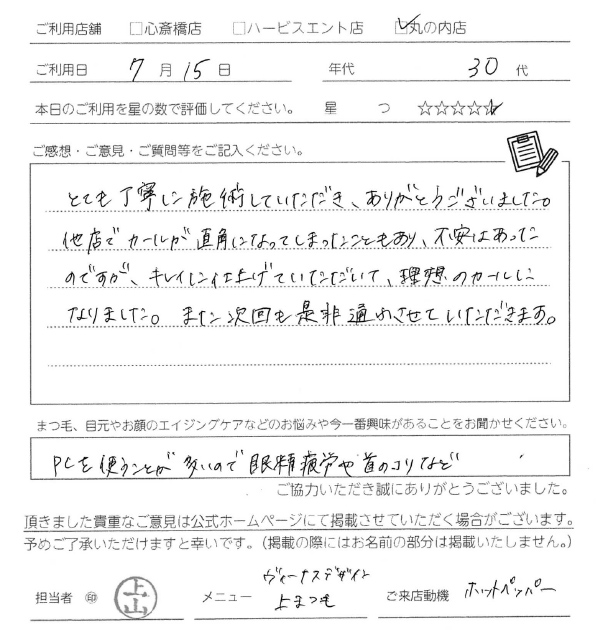 ご利用店舗 □心斎橋店 □ハービスエント店 ☑丸の内店
ご利用日 7月15日 年代 30代
本日のご利用を星の数で評価してください。 星 つ ☆☆☆☆☆
ご感想・ご意見・ご質問等をご記入ください。
とても丁寧に施術していただき、ありがとうございました。
他店でカールが直角になってしまったこともあり、不安はあった
のですが、キレイに仕上げていただいて、理想のカールに
なりました。また次回も是非通わさせていただきます。
まつ毛、目元やお顔のエイジングケアなどのお悩みや今一番興味があることをお聞かせください。
PCを使うことが多いので眼精疲労や首のコリなど
ご協力いただき誠にありがとうございました。
頂きました貴重なご意見は公式ホームページにて掲載させていただく場合がございます。
予めご了承いただけますと幸いです。（掲載の際にはお名前の部分は掲載いたしません。）
担当者 ㊞ 上山 メニュー ヴィーナスデザイン 上まつも ご来店動機 ホットペッパー